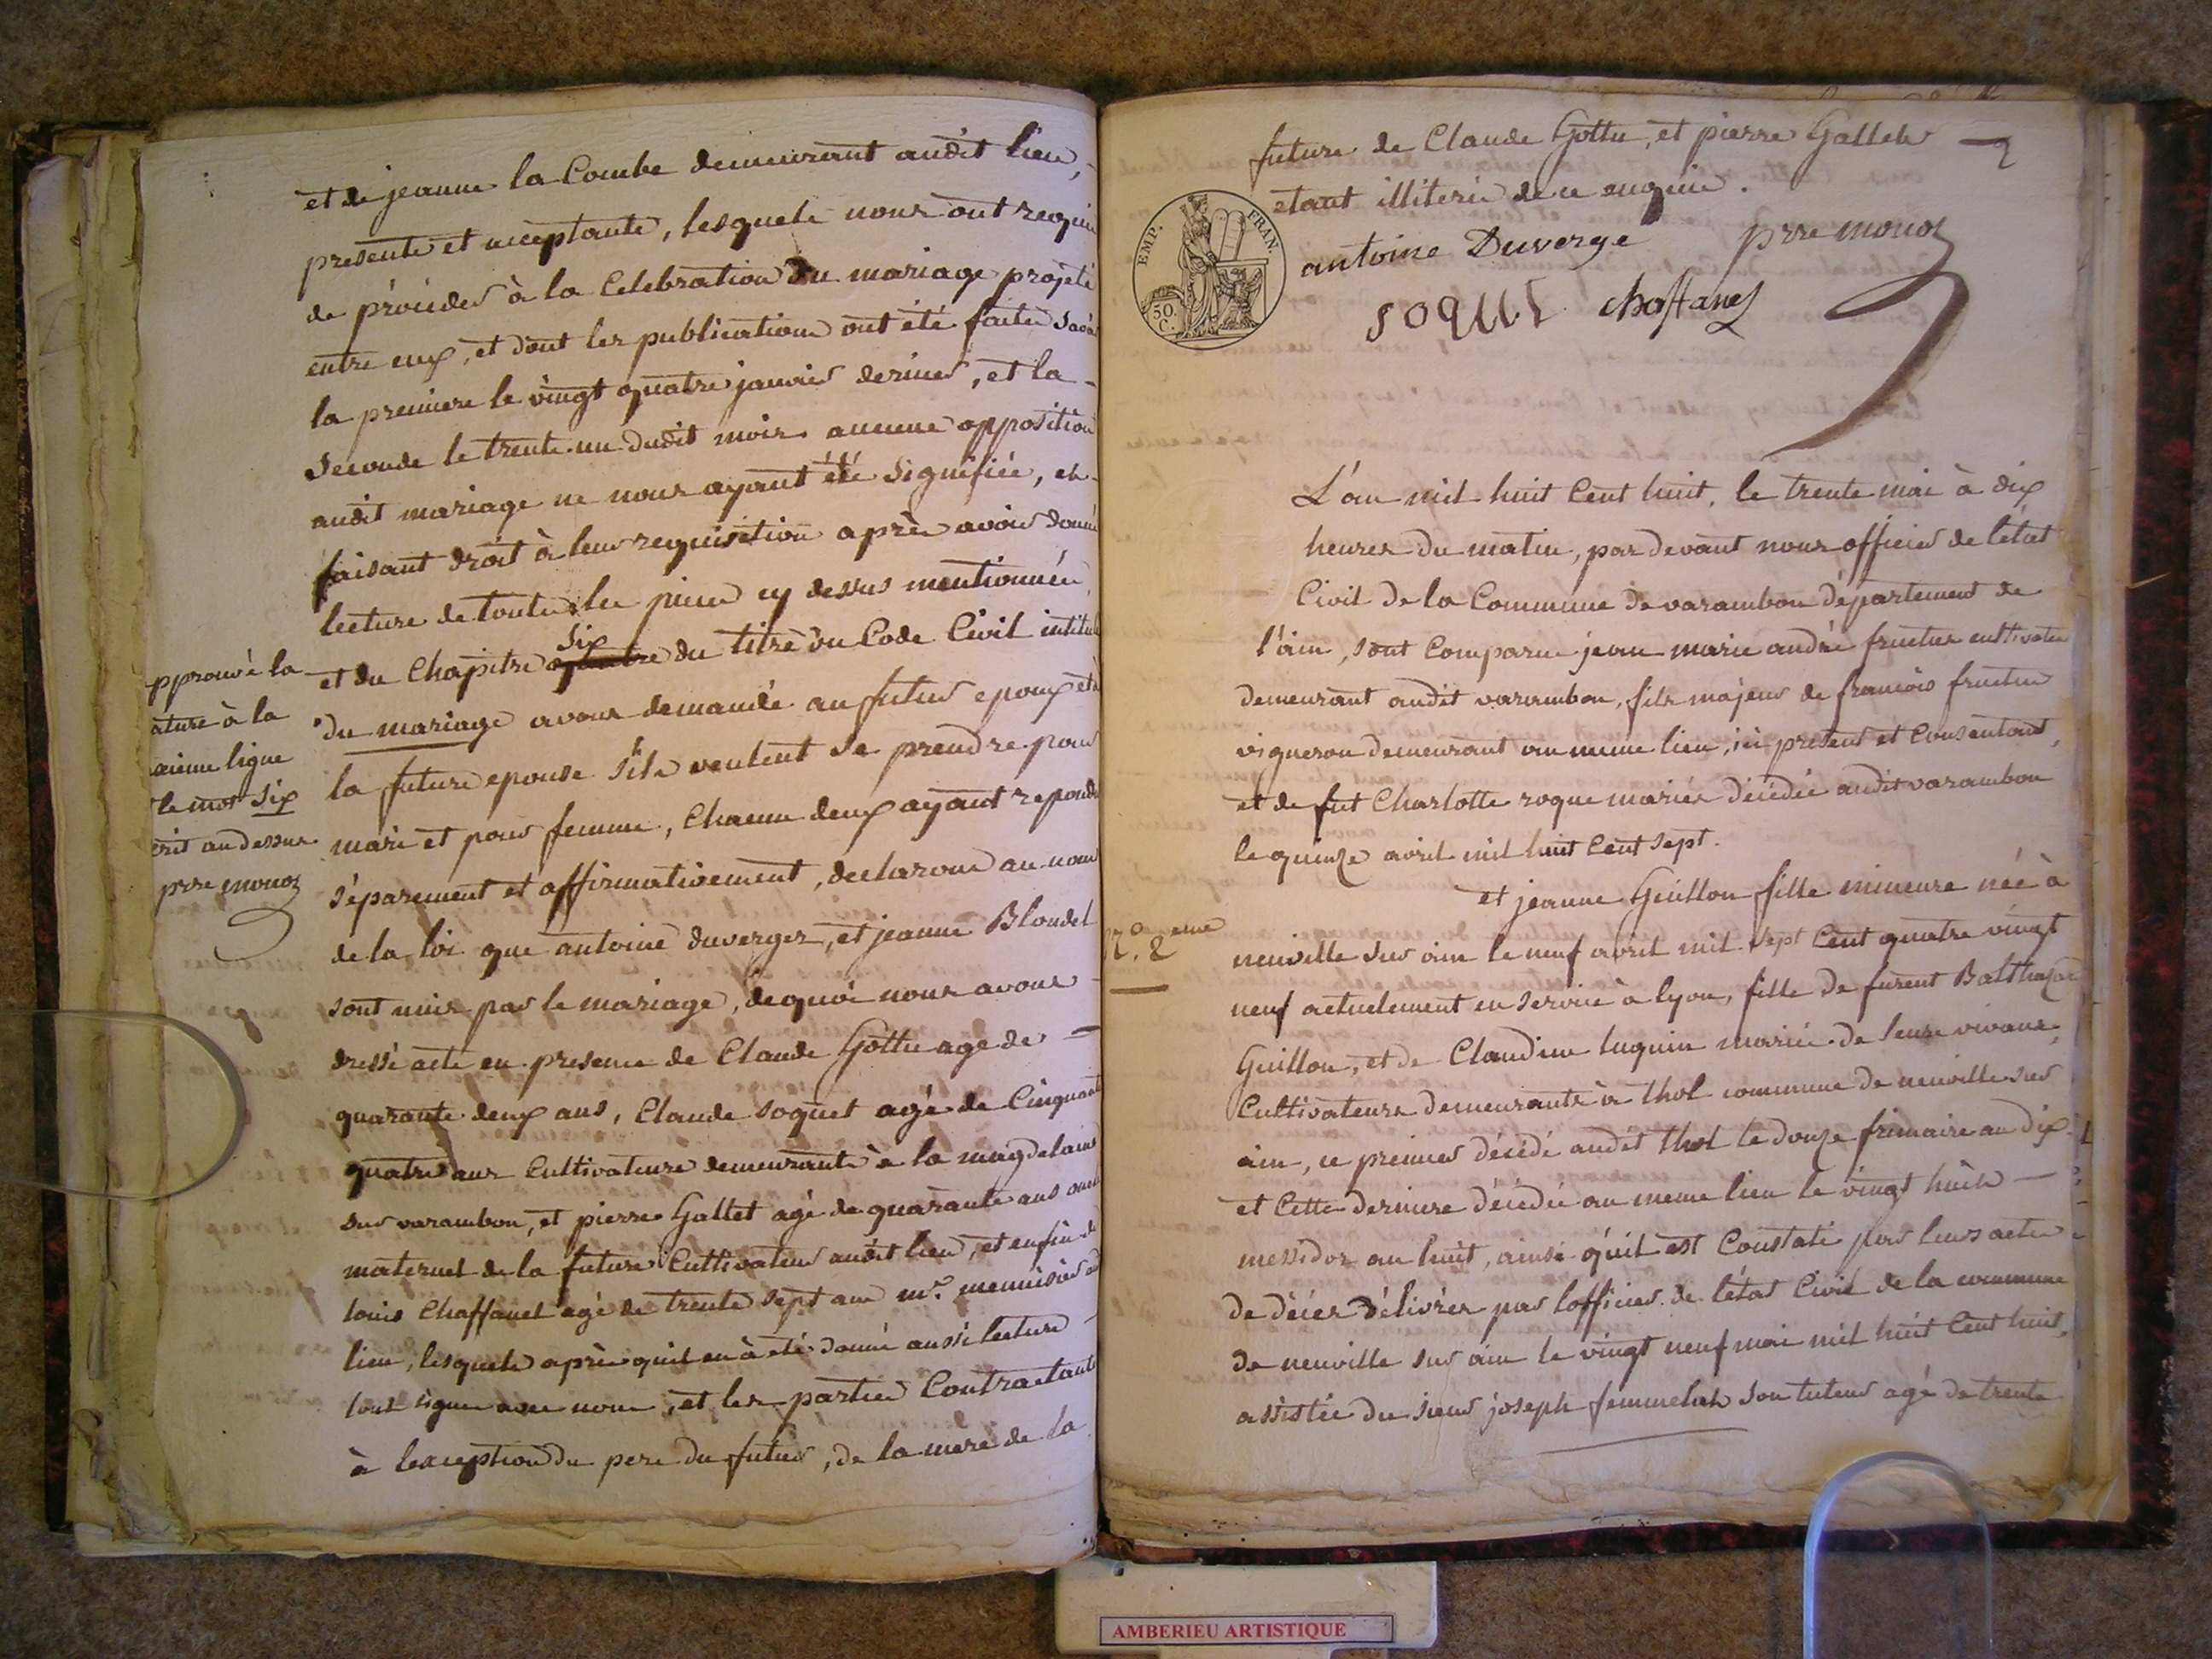 et de jeanne la Combe demeurant audit lieu,
presente et acceptante, lesquels nous ont requis
de proceder à la Celebration du mariage projeté
entre eux, et dont les publications ont été faites
la premiere le vingt quatre janvier dernier, et la
seconde le trente un dudit mois aucune opposition
audit mariage ne nous ayant été signifiée, et
faisant droit à leur requisition après avoir donné
lecture de toutes les pieces cy dessus mentionnées
six
et du Chapitre quatre du titre du Code Civil intitulé
du mariage avons demandé au futur epoux et à
la future epouse s'ils veulent se prendre pour
mari et pour femme, Chacun deux ayant repondu
séparement et affirmativement, declarons au nom
de la loi que antoine duverger, et jeanne Blondel
sont unis par le mariage, de quoi nous avons
dressé acte en presence de Claude Gottu agé de
quarante deux ans, Claude soquet agé de Cinquante
quatre ans Cultivateurs demeurants à la magdelaine
sur varambon, et pierre Gallet agé de quarante ans
maternel de la future Cultivateur audit lieu, et enfin de
louis Chaffanel agé de trente sept ans mre. menuisier
lieu, lesquels après quil en à été donné aussi lecture
sont signé avec nous, et les parties Contractantes
à lexception du pere du futur, de la mere de la
pprouvé la
ature à la
xieme ligne
le mot six
crit au dessus
prre monoz
future de Claude Gottu, et pierre Gallet
etant illiterés de ce enquis.
EMP. FRAN.
50. C.
antoine Duverge prre monoz
soquet chaffanel
L'an mil huit Cent huit, le trente mai à dix
heures du matin, par devant nous officier de l'état
Civil de la Commune de varambon département de
l'ain, sont Comparus jean marie andré fructus cultivateur
demeurant audit varambon, fils majeur de francois fructus
vigneron demeurant au meme lieu, ici present et Consentant,
et de fut Charlotte roque mariés décédée audit varambon
le quinze avril mil huit Cent sept.
et jeanne Guillon fille mineure née à
N.o 2 eme
neuville sur ain le neuf avril mil sept Cent quatre vingt
neuf actuelement en service à lyon, fille de furent Balthazar
Guillon, et de Claudine luquin mariés de leurs vivans,
Cultivateurs demeurants à thol commune de neuville sur
ain, ce premier décédé audit thol le douze frimaire an dix
et Cette derniere décédée au meme lieu le vingt huit
messidor an huit, ainsi qu'il est Constaté par leurs actes
de décès délivrés par lofficier de l'état Civil de la commune
de neuville sur ain le vingt neuf mai mil huit Cent huit,
assistée du sieur joseph son tuteur agé de trente
AMBERIEU ARTISTIQUE